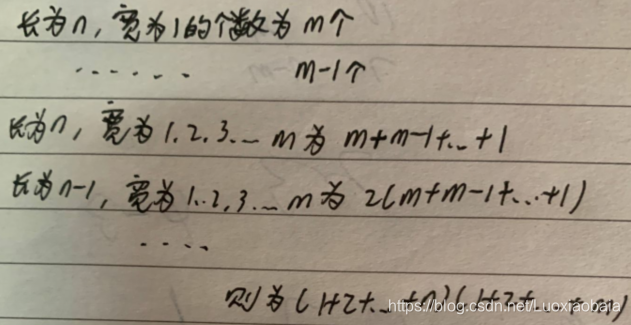 长为n,宽为1的个数为 m个
...... m-1个
长为n,宽为1.2.3... m为 m+m-1+..+1
长为n-1,宽为1..2.3... m为 2(m+m-1+...+1)
....
则为(1+2+...+n)(1+2+
https://blog.csdn.net/Luoxiaobaia